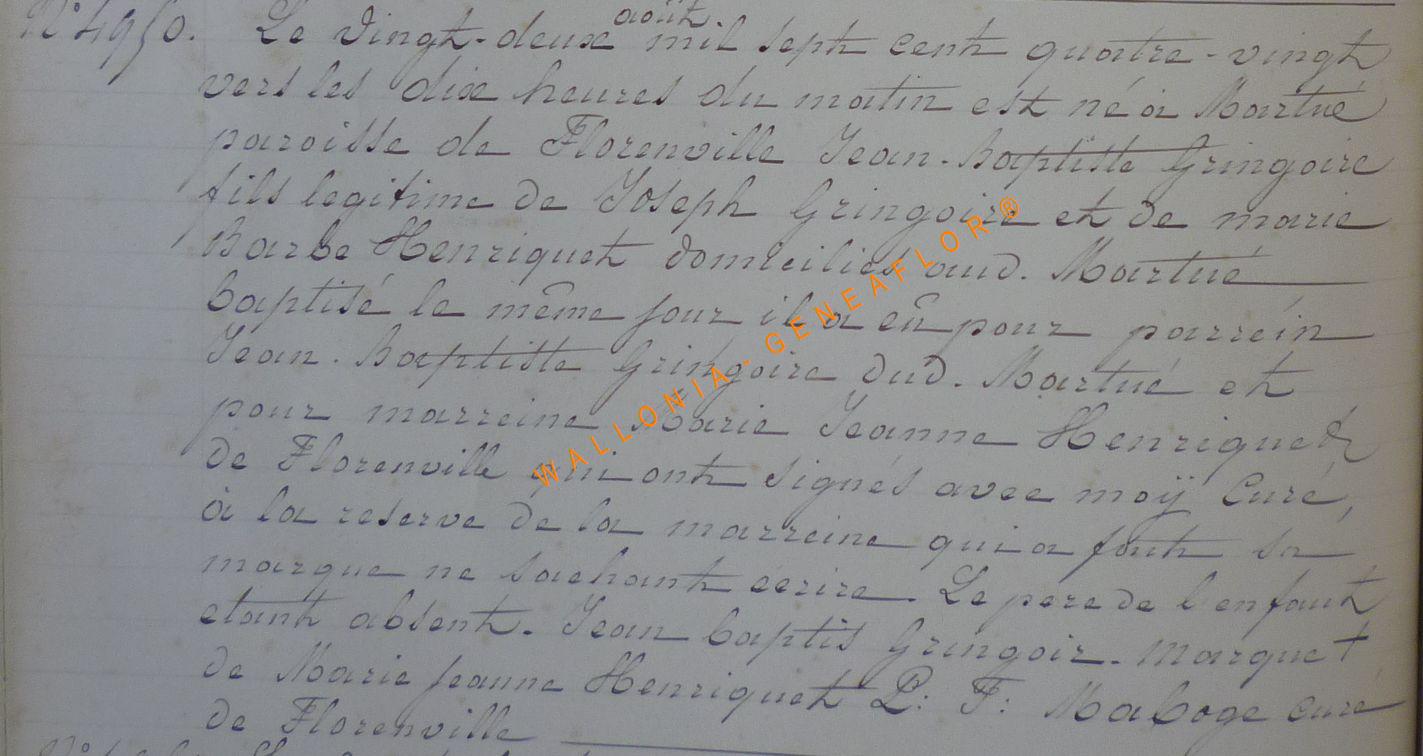 N° 4950. Le vingt-deux août mil sept cent quatre-vingt
vers les dix heures du matin est né à Martué
paroisse de Florenville Jean-Baptiste Gringoire
fils legitime de Joseph Gringoire et de marie
Barbe Henriquet domiciliés aud. Martué
baptisé le même jour il a eû pour parrein
Jean-Baptiste Gringoire dud. Martué et
pour marreine Marie Jeanne Henriquet
de Florenville qui ont signés avec moÿ Curé,
à la reserve de la marreine qui a fait sa
marque ne sachant ecrire. Le pere de l'enfant
etant absent. Jean baptis Gringoir. Marque +
de Marie jeanne Henriquet P: F: Maboge curé
de Florenville
WALLONIA-GENEAFLOR®